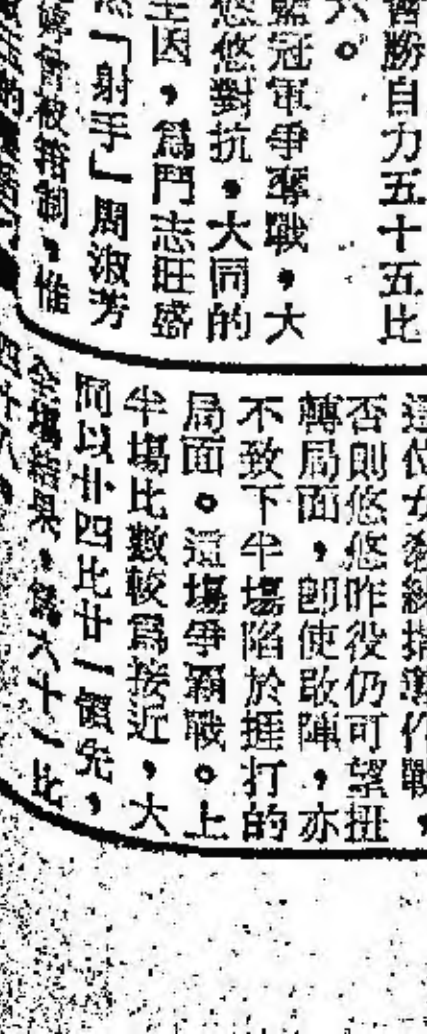 曾勝自力五十五比
六。
籃冠軍爭奪戰，大
悠悠對抗，大同的
主因，為鬥志旺盛
「射手」周淑芳
會被箝制，惟
否則悠悠昨役仍可望扭
轉局面，即使敗陣，亦
不致下半場陷於捱打的
局面。這場爭霸戰。上
半場比數較為接近，大
同以卅四比廿一領先，
全場結果，為六十一比
四十八。